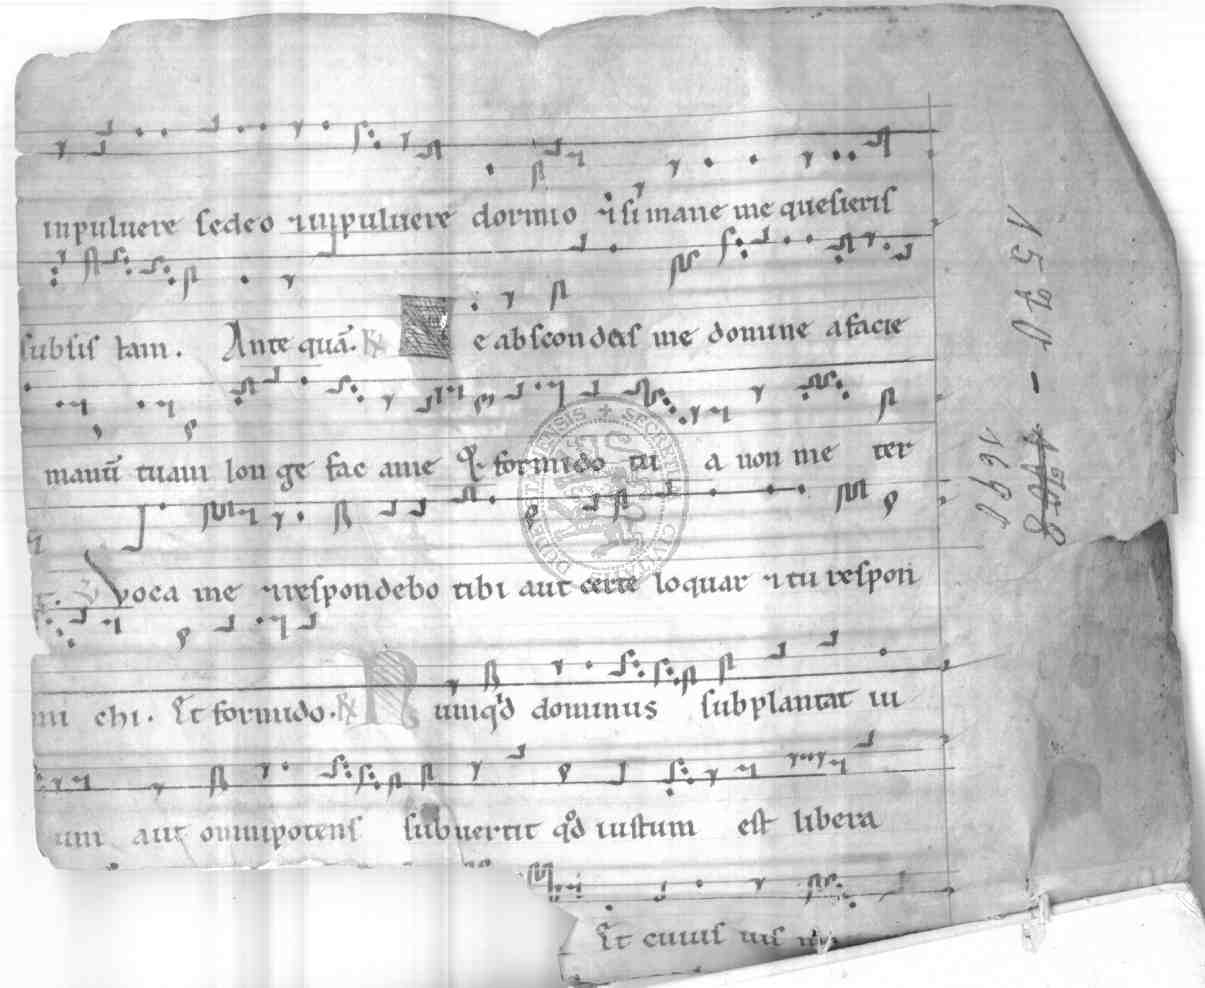 inpuluere sedeo ⁊ inpuluere dormio ⁊ si mane me quesieris
subsis tam. Ante quā. ℟ e abscondas me domine afacie
manū tuam lon ge fac ame ⁊ formido tu a non me ter
voca me ⁊ respondebo tibi aut certe loquar ⁊ tu respon
mi chi. Et formido. ℟ N unqd dominus subplantat iu
um aut omnipotens subuertit qd iustum est libera
Et cuius uis
1697